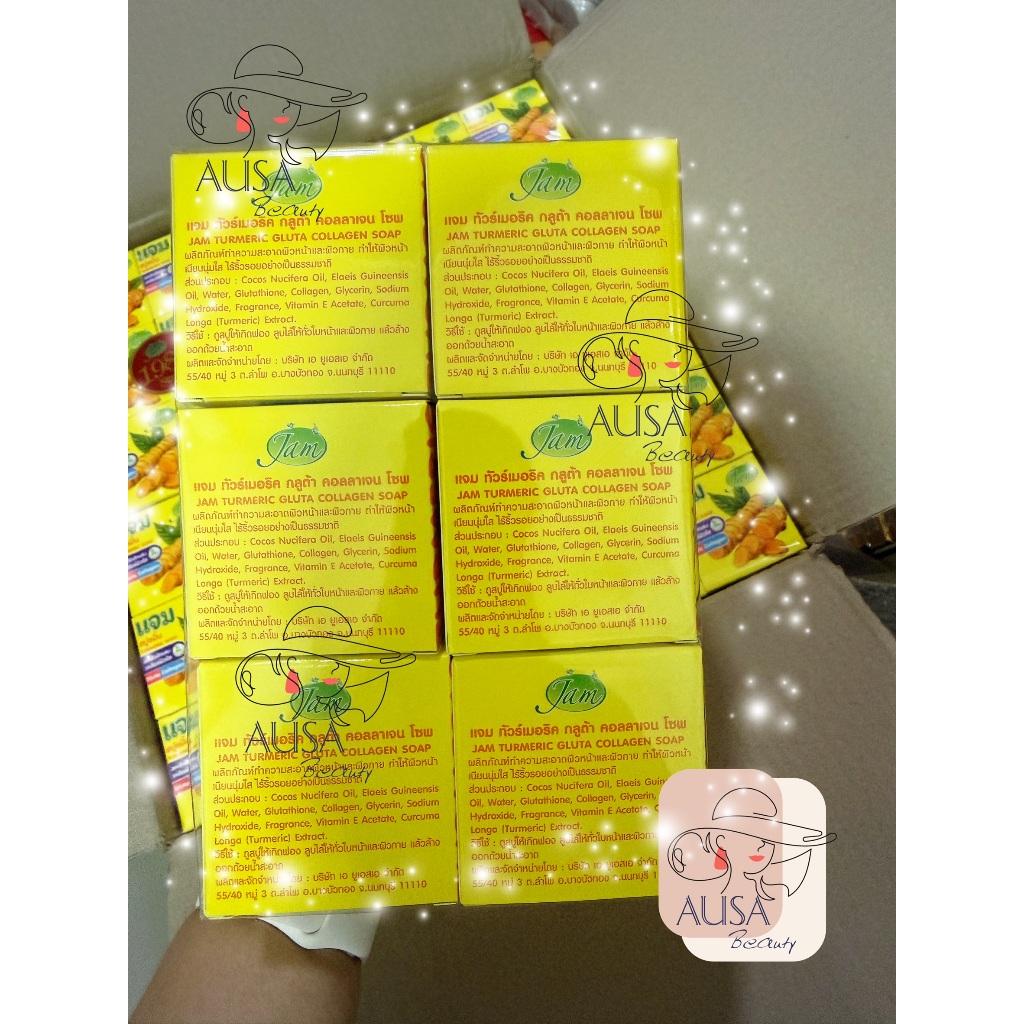 Jam
แจม ทัวร์เมอริค กลูต้า คอลลาเจน โซพ
JAM TURMERIC GLUTA COLLAGEN SOAP
ผลิตภัณฑ์ทำความสะอาดผิวหน้าและผิวกาย ทำให้ผิวหน้า
เนียนนุ่มใส ไร้ริ้วรอยอย่างเป็นธรรมชาติ
ส่วนประกอบ : Cocos Nucifera Oil, Elaeis Guineensis
Oil, Water, Glutathione, Collagen, Glycerin, Sodium
Hydroxide, Fragrance, Vitamin E Acetate, Curcuma
Longa (Turmeric) Extract.
วิธีใช้ : ถูสบู่ให้เกิดฟอง ลูบไล้ให้ทั่วใบหน้าและผิวกาย แล้วล้าง
ออกด้วยน้ำสะอาด
ผลิตและจัดจำหน่ายโดย : บริษัท เอ ยูเอสเอ จำกัด
55/40 หมู่ 3 ต.ลำโพ อ.บางบัวทอง จ.นนทบุรี 11110
Jam
แจม ทัวร์เมอริค กลูต้า คอลลาเจน โซพ
JAM TURMERIC GLUTA COLLAGEN SOAP
ผลิตภัณฑ์ทำความสะอาดผิวหน้าและผิวกาย ทำให้ผิวหน้า
เนียนนุ่มใส ไร้ริ้วรอยอย่างเป็นธรรมชาติ
ส่วนประกอบ : Cocos Nucifera Oil, Elaeis Guineensis
Oil, Water, Glutathione, Collagen, Glycerin, Sodium
Hydroxide, Fragrance, Vitamin E Acetate, Curcuma
Longa (Turmeric) Extract.
วิธีใช้ : ถูสบู่ให้เกิดฟอง ลูบไล้ให้ทั่วใบหน้าและผิวกาย แล้วล้าง
ออกด้วยน้ำสะอาด
ผลิตและจัดจำหน่ายโดย : บริษัท เอ ยูเอสเอ จำกัด
55/40 หมู่ 3 ต.ลำโพ อ.บางบัวทอง จ.นนทบุรี 11110
Jam
แจม ทัวร์เมอริค กลูต้า คอลลาเจน โซพ
JAM TURMERIC GLUTA COLLAGEN SOAP
ผลิตภัณฑ์ทำความสะอาดผิวหน้าและผิวกาย ทำให้ผิวหน้า
เนียนนุ่มใส ไร้ริ้วรอยอย่างเป็นธรรมชาติ
ส่วนประกอบ : Cocos Nucifera Oil, Elaeis Guineensis
Oil, Water, Glutathione, Collagen, Glycerin, Sodium
Hydroxide, Fragrance, Vitamin E Acetate, Curcuma
Longa (Turmeric) Extract.
วิธีใช้ : ถูสบู่ให้เกิดฟอง ลูบไล้ให้ทั่วใบหน้าและผิวกาย แล้วล้าง
ออกด้วยน้ำสะอาด
ผลิตและจัดจำหน่ายโดย : บริษัท เอ ยูเอสเอ จำกัด
55/40 หมู่ 3 ต.ลำโพ อ.บางบัวทอง จ.นนทบุรี 11110
Jam
แจม ทัวร์เมอริค กลูต้า คอลลาเจน โซพ
JAM TURMERIC GLUTA COLLAGEN SOAP
ผลิตภัณฑ์ทำความสะอาดผิวหน้าและผิวกาย ทำให้ผิวหน้า
เนียนนุ่มใส ไร้ริ้วรอยอย่างเป็นธรรมชาติ
ส่วนประกอบ : Cocos Nucifera Oil, Elaeis Guineensis
Oil, Water, Glutathione, Collagen, Glycerin, Sodium
Hydroxide, Fragrance, Vitamin E Acetate, Curcuma
Longa (Turmeric) Extract.
วิธีใช้ : ถูสบู่ให้เกิดฟอง ลูบไล้ให้ทั่วใบหน้าและผิวกาย แล้วล้าง
ออกด้วยน้ำสะอาด
ผลิตและจัดจำหน่ายโดย : บริษัท เอ ยูเอสเอ จำกัด
55/40 หมู่ 3 ต.ลำโพ อ.บางบัวทอง จ.นนทบุรี 11110
Jam
แจม ทัวร์เมอริค กลูต้า คอลลาเจน โซพ
JAM TURMERIC GLUTA COLLAGEN SOAP
ผลิตภัณฑ์ทำความสะอาดผิวหน้าและผิวกาย ทำให้ผิวหน้า
เนียนนุ่มใส ไร้ริ้วรอยอย่างเป็นธรรมชาติ
ส่วนประกอบ : Cocos Nucifera Oil, Elaeis Guineensis
Oil, Water, Glutathione, Collagen, Glycerin, Sodium
Hydroxide, Fragrance, Vitamin E Acetate, Curcuma
Longa (Turmeric) Extract.
วิธีใช้ : ถูสบู่ให้เกิดฟอง ลูบไล้ให้ทั่วใบหน้าและผิวกาย แล้วล้าง
ออกด้วยน้ำสะอาด
ผลิตและจัดจำหน่ายโดย : บริษัท เอ ยูเอสเอ จำกัด
55/40 หมู่ 3 ต.ลำโพ อ.บางบัวทอง จ.นนทบุรี 11110
Jam
แจม ทัวร์เมอริค กลูต้า คอลลาเจน โซพ
JAM TURMERIC GLUTA COLLAGEN SOAP
ผลิตภัณฑ์ทำความสะอาดผิวหน้าและผิวกาย ทำให้ผิวหน้า
เนียนนุ่มใส ไร้ริ้วรอยอย่างเป็นธรรมชาติ
ส่วนประกอบ : Cocos Nucifera Oil, Elaeis Guineensis
Oil, Water, Glutathione, Collagen, Glycerin,
Hydroxide, Fragrance, Vitamin E Acetate,
Longa (Turmeric) Extract.
วิธีใช้ : ถูสบู่ให้เกิดฟอง ลูบไล้ให้ทั่วใบหน้าและผิว
ออกด้วยน้ำสะอาด
ผลิตและจัดจำหน่ายโดย : บริษัท เอ ยูเอสเอ จำกัด
55/40 หมู่ 3 ต.ลำโพ อ.บางบัวทอง จ.นนทบุรี 11110
AUSA
Beauty
AUSA
Beauty
AUSA
Beauty
AUSA
Beauty
แจม
แจม
แจม